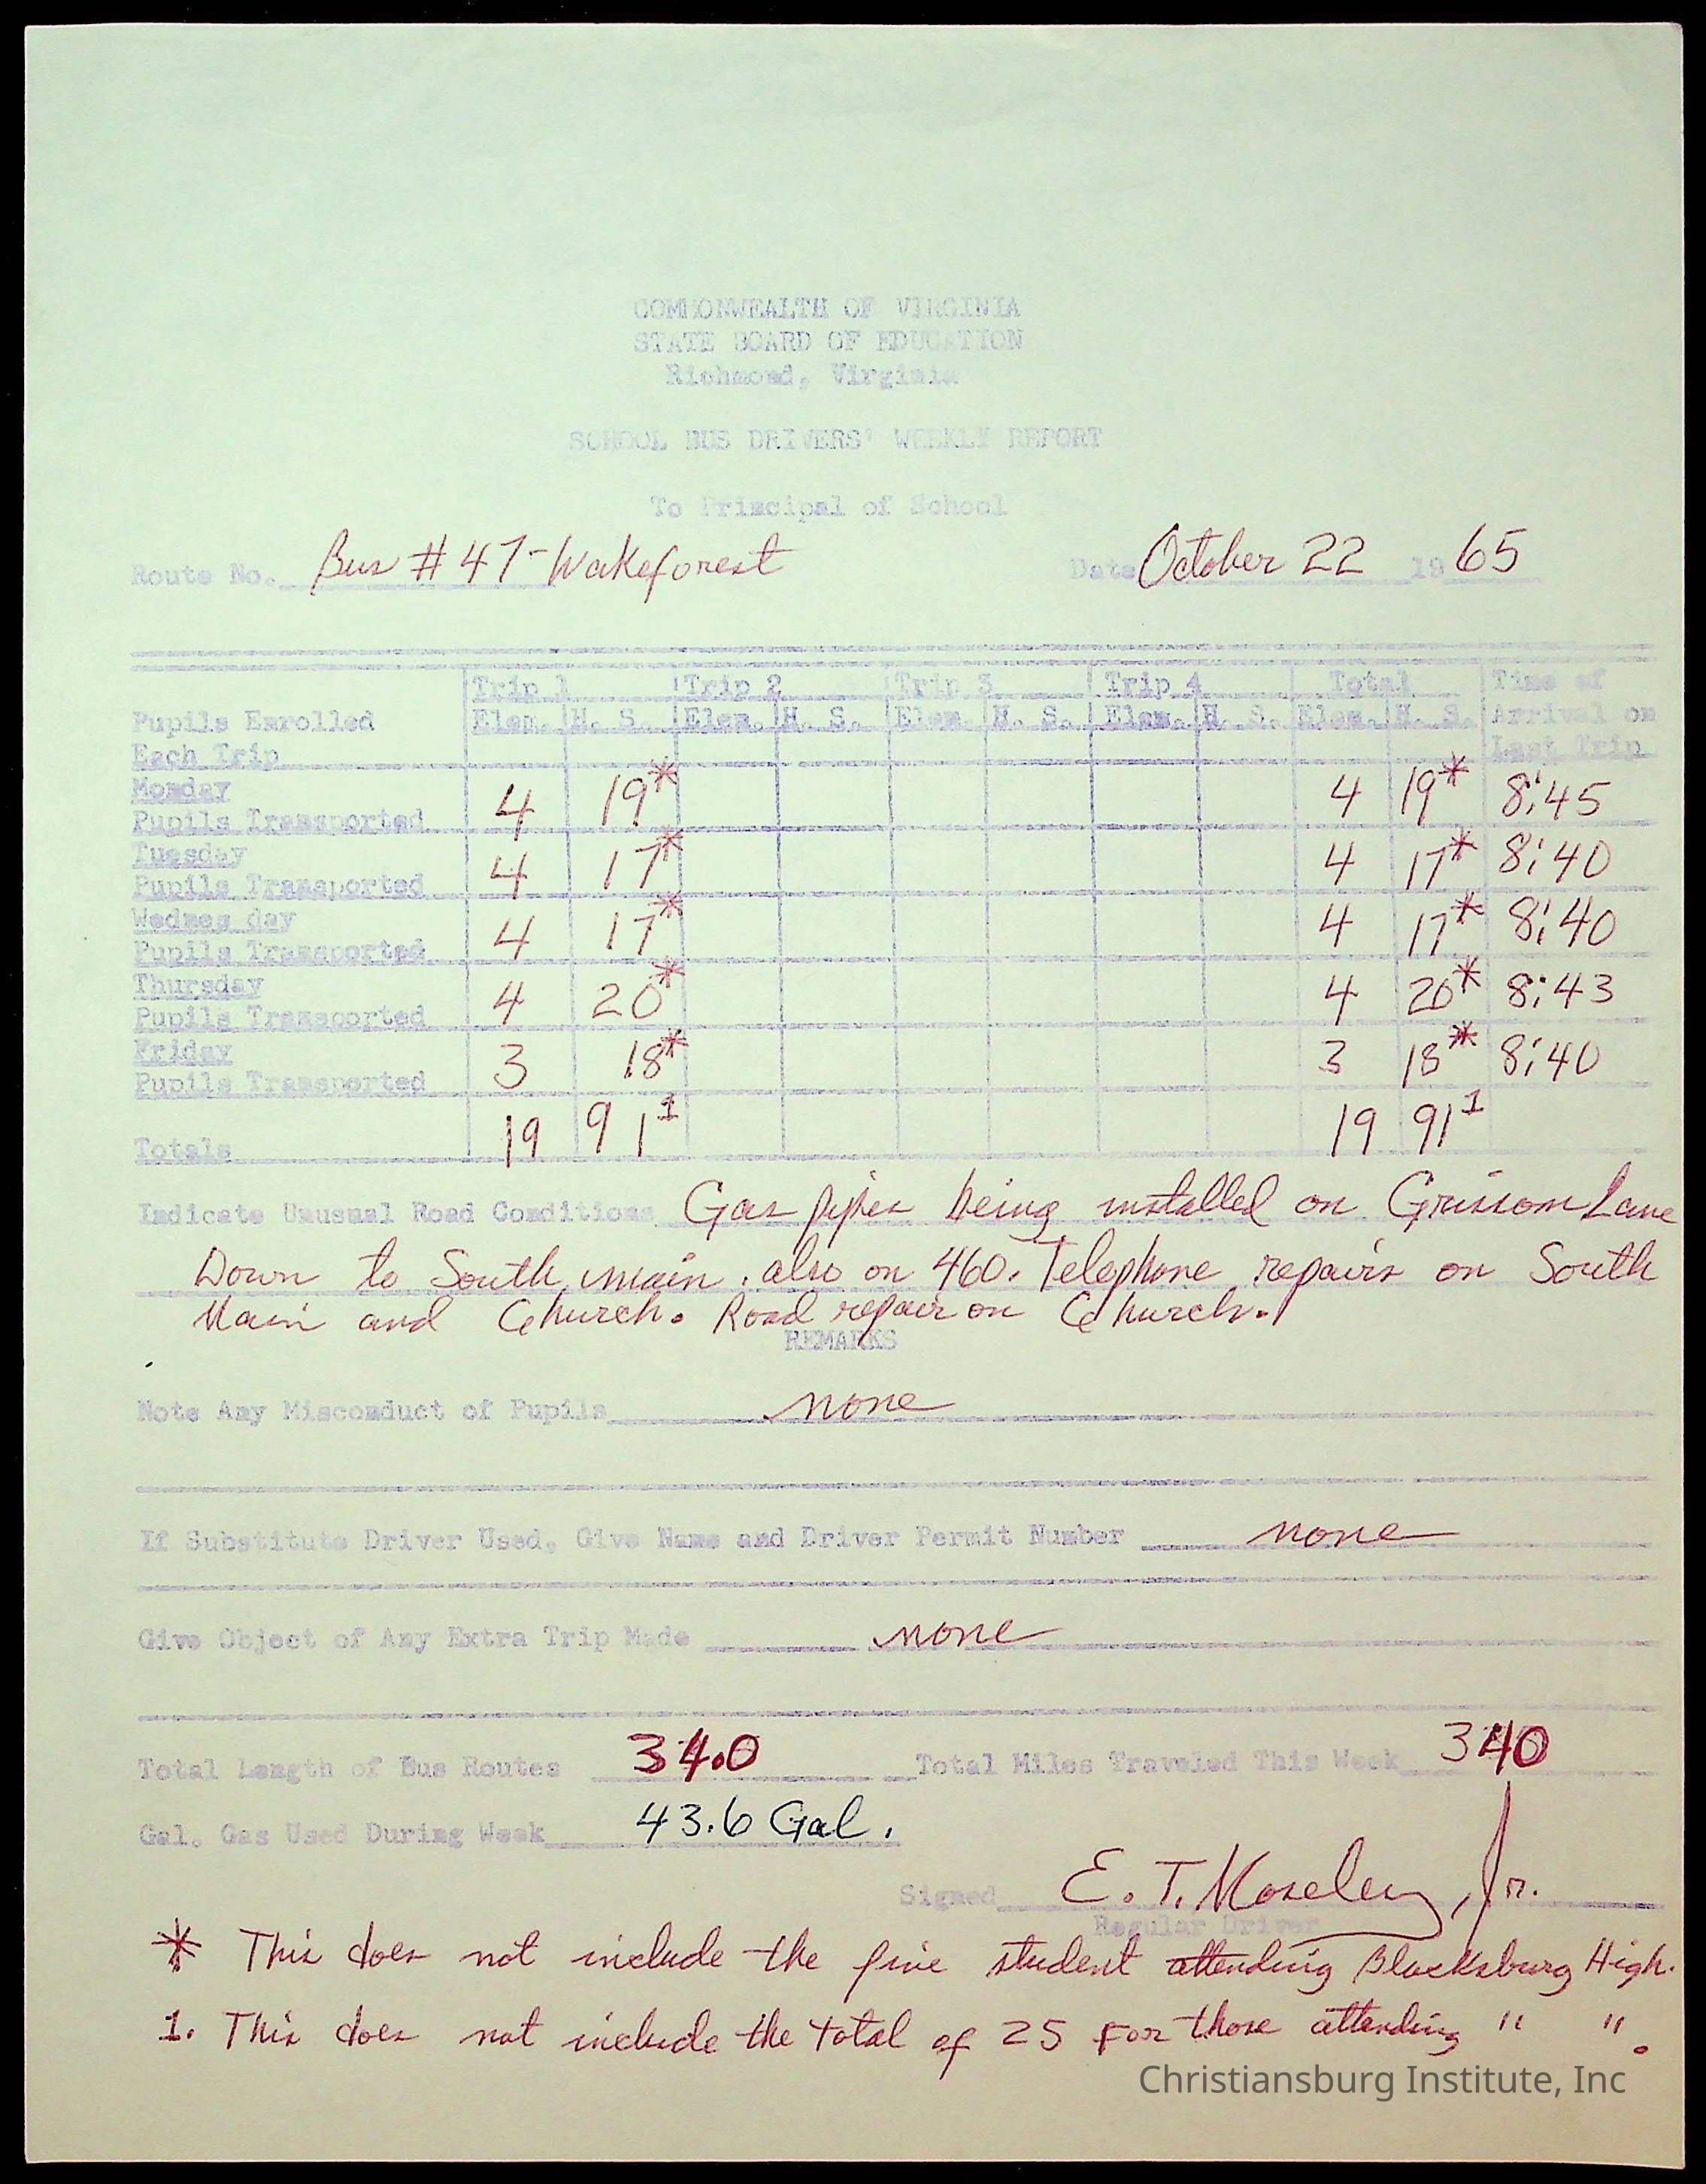 COMMONWEALTH OF VIRGINIA
STATE BOARD OF EDUCATION
Richmond, Virginia
SCHOOL BUS DRIVERS' WEEKLY REPORT
To Principal of School
Route No. Bus # 47-Wakeforest Date October 22 1965
Trip 1 Trip 2 Trip 3 Trip 4 Total Time of
Pupils Enrolled Elem. H. S. Elem. H. S. Elem. H. S. Elem. H. S. Elem. H. S. Arrival on
Each Trip Last Trip
Monday
Pupils Transported 4 19* 4 19* 8:45
Tuesday
Pupils Transported 4 17* 4 17* 8:40
Wednes day
Pupils Transported 4 17* 4 17* 8:40
Thursday
Pupils Transported 4 20* 4 20* 8:43
Friday
Pupils Transported 3 18* 3 18* 8:40
Totals 19 91¹ 19 91¹
Indicate Unusual Road Conditions Gas pipes being installed on Grissom Lane
Down to South main. also on 460. Telephone repairs on South
Main and Church. Road repair on Church.
REMARKS
Note Any Misconduct of Pupils none
If Substitute Driver Used, Give Name and Driver Permit Number none
Give Object of Any Extra Trip Made none
Total Length of Bus Routes 34.0 Total Miles Traveled This Week 340
Gal. Gas Used During Week 43.6 Gal.
Signed E. T. Moseley, Jr.
Regular Driver
* This does not include the five student attending Blacksburg High.
1. This does not include the total of 25 For those attending " ".
Christiansburg Institute, Inc